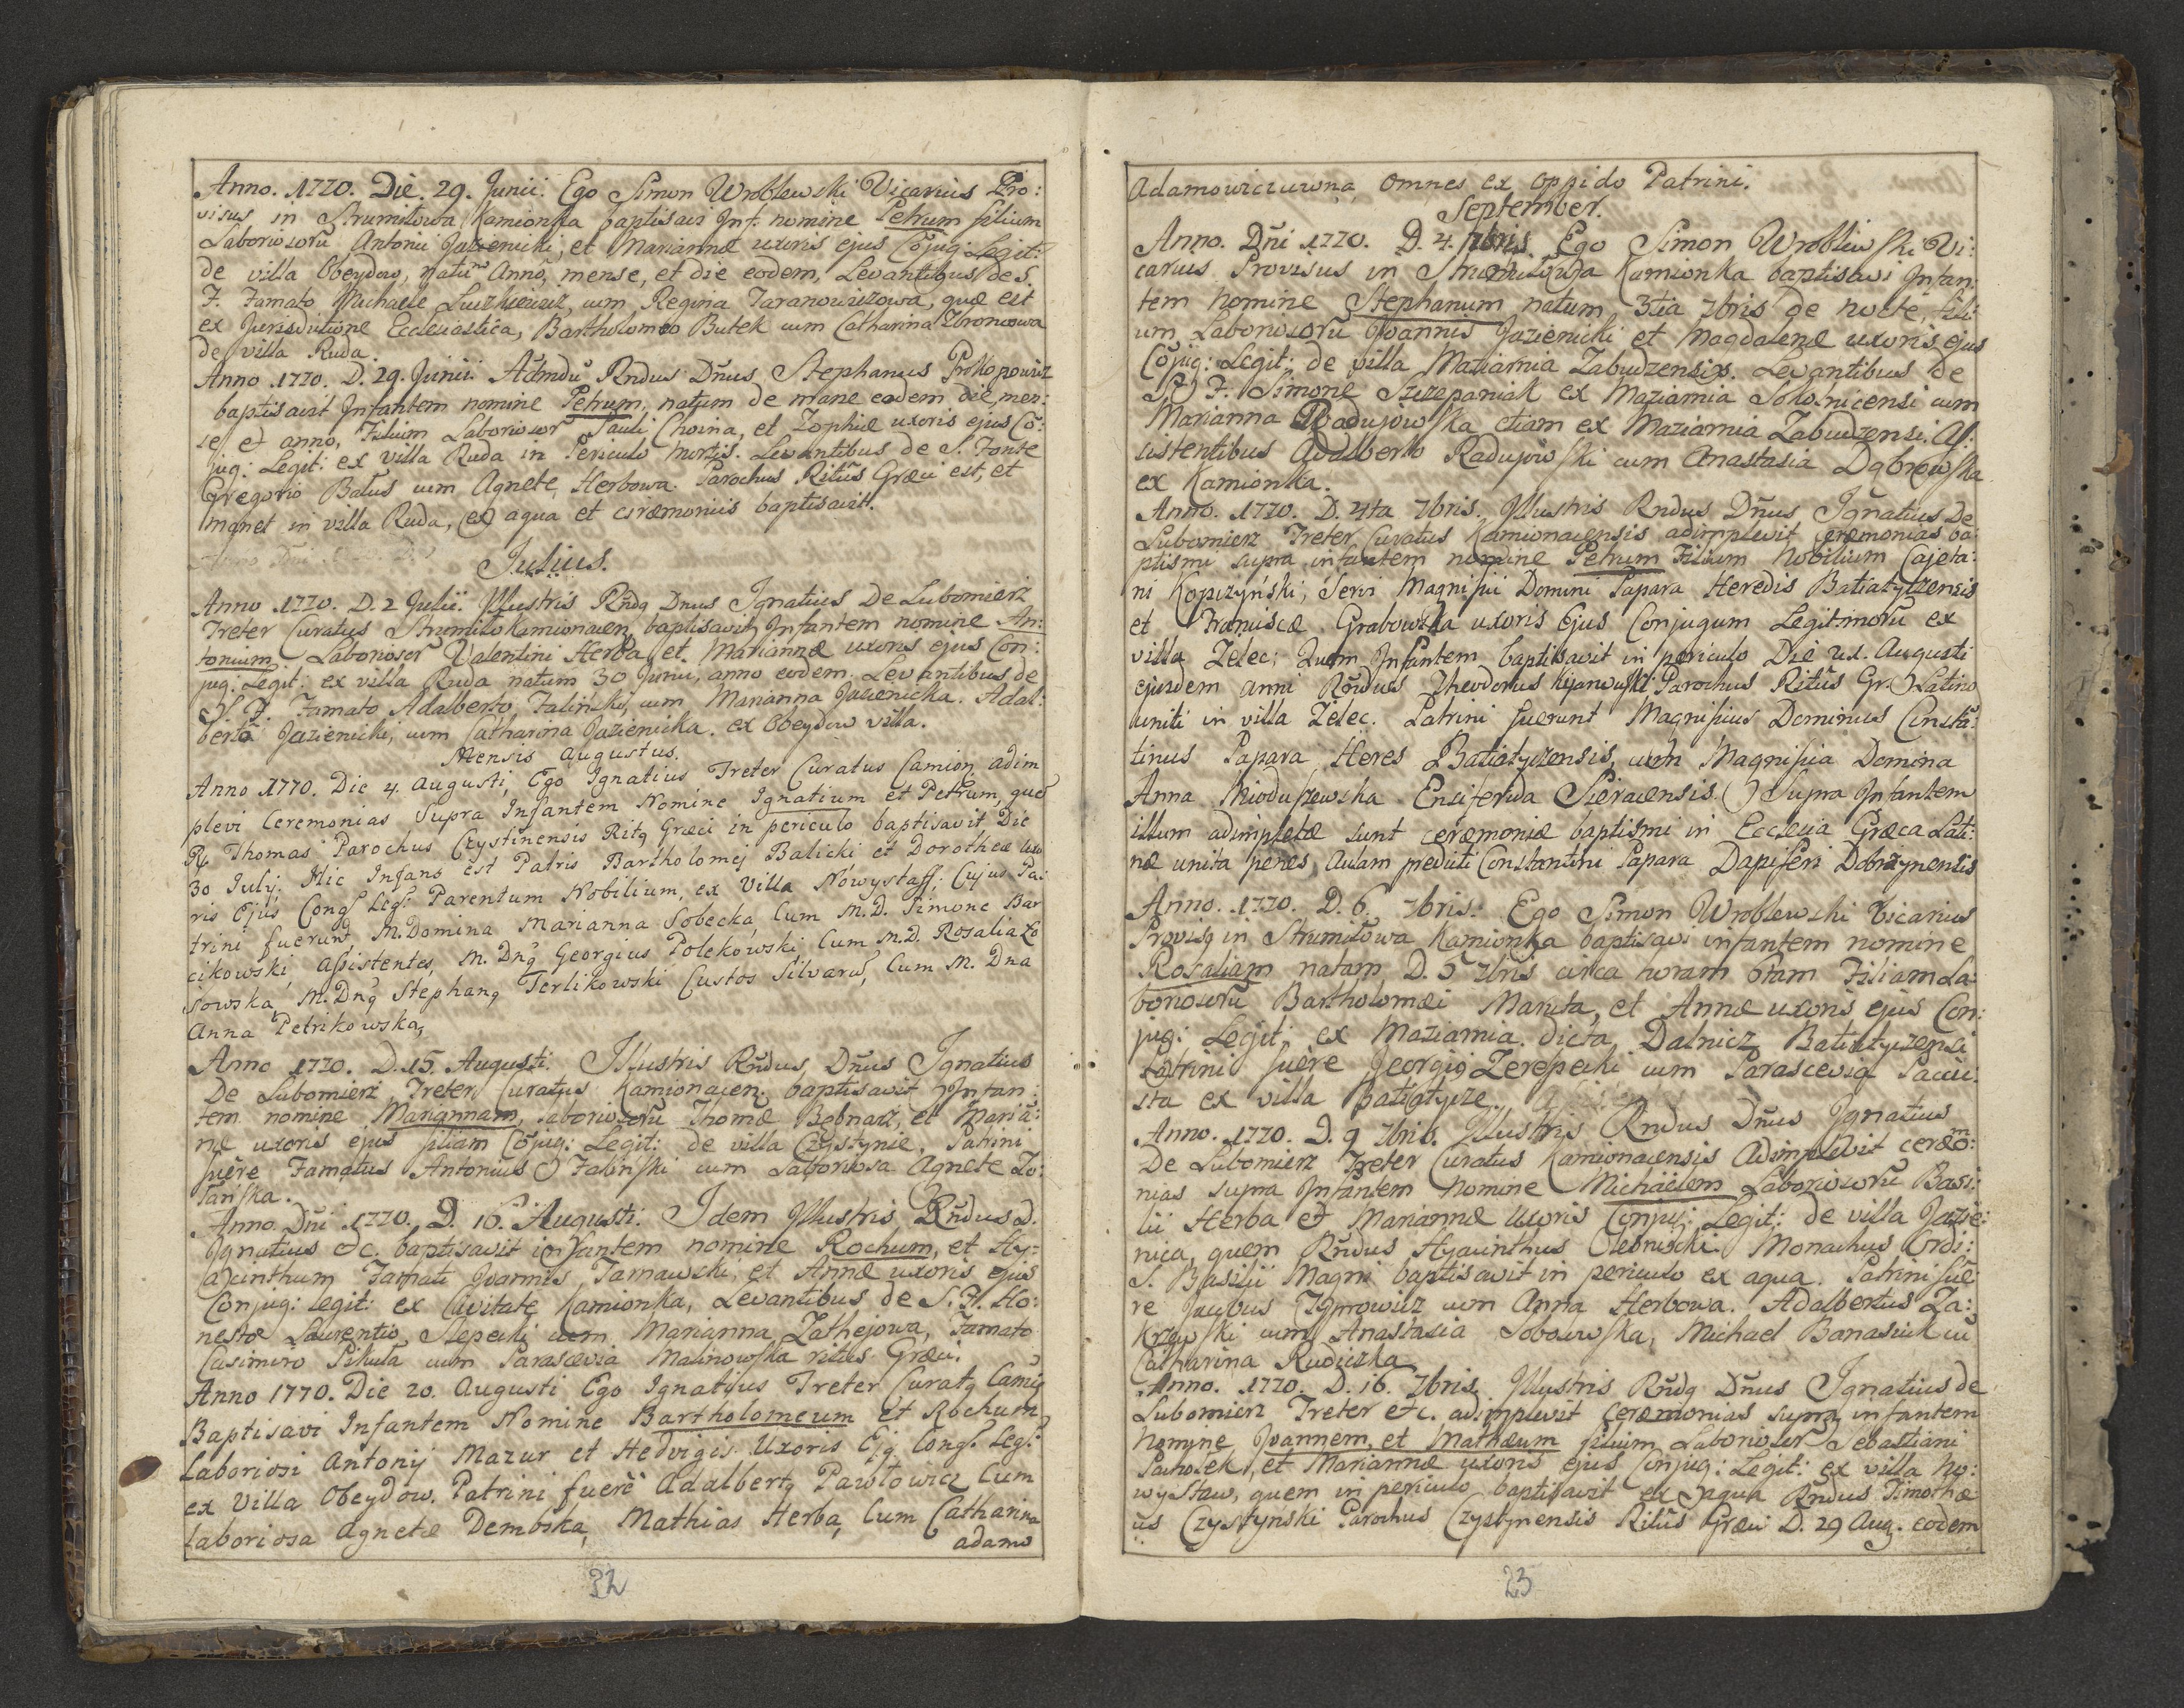 Anno. 1770. Die. 29. Junii. Ego Simon Wroblewski Vicarius Pro:
visus in Strumitowa Kamionka baptisavi Inf: nomine Petrum filium
Laboriosorũ Antonii Jazienicki, et Mariannæ uxoris ejus Cõjug: Legit:
de villa Obeydow, natũ Anno, mense, et die eodem, Levantibus de S.
F. Famato Michaele cum Regina Taranowiczowa, quæ est
ex Jurisdictione Ecclesiastica, Bartholomeo Butek cum Catharina Zbroncowa
de villa Ruda.
Anno 1770. D. 29. Junii Admdũ Rndus Dñus Stephanus Prokopowicz
baptisavit Infantem nomine Petrum, natum de mane eodem die men:
se et anno, Filium Laboriosor Pauli Choina, et Zophiæ uxoris ejus Cõ:
jug: Legit: ex villa Ruda in Periculo mortis. Levantibus de S. Fonte
Gregorio Batus cum Agnete Herbowa. Parochus Ritũs Græci est, et
manet in villa Ruda, ex aqua et ciræmoniis baptisavit.
Julius.
Anno 1770. D. 2 Julii. Illustris Rñdq Dnus Ignatius De Lubomierz
Treter Curatus Strumito Kamionacen, baptisavit Infantem nomine An:
tonium Laboriosor Valentini Herba et Mariannæ uxoris ejus Con:
jug: Legit: ex villa Ruda natum 30 Junii, anno eodem. Levantibus de
S. F. Famato Adalberto Falinski, cum Marianna Jazienicka. Adal:
berto Jazienicki, cum Catharina Jazienicka. ex Obeydow villa.
Mensis Augustus.
Anno 1770. Die 4. Augusti, Ego Ignatius Treter Curatus Camion adim
plevi Ceremonias Supra Infantem Nomine Ignatium et Petrum, quẽ
Rq Thomas Parochus Czystinensis Ritq Græci in periculo baptisavit Die
30 July. Hic Infans est Patris Bartholomej Balicki et Dorotheæ Uxo
ris Ejus Cong Leg: Parentum Nobilium, ex Villa Nowystaff; Cujus Pa:
trini fuerunt M. Domina Marianna Sobecka Cum M.D. Simone Bar
cikowski, Assistentes, M. Dnq Georgius Polekowski Cum M.D. Rosalia Lo
sowska, M. Dnq Stephanq Terlikowski Custos Silvarũ, Cum M. Dna
Anna Petrikowska,
Anno 1770. D. 15. Augusti. Illustris Rñdus Dñus Ignatius
De Lubomierz Treter Curatus Kamionacen. baptisavit Infan:
tem nomine Mariannam, Laboriosorũ Thomæ Bednarz, et Mariã:
næ uxoris ejus filiam Cõjug: Legit: de villa Czystynie, Patrini
fuêre Famatus Antonius Falinski cum Laboriosa Agnete Zo:
tanska.
Anno Dñi 1770. D. 16. Augusti. Idem Illustris Rñdus D.
Ignatius etc. baptisavit infantem nomine Rochum, et Hy:
acinthum Famati Joannis Tarnawski, et Annæ uxoris ejus
Conjug: legit: ex Civitate Kamionka, Levantibus de S. F. Ho:
nesto Laurentio Slepecki cum Marianna Zathejowa, Famato
Casimiro Pikuta cum Parascevia Malinowska ritus Græci.
Anno 1770. Die 20. Augusti Ego Ignatius Treter Curatq Camio
Baptisavi Infantem Nomine Bartholomeum et Rochum
Laboriosi Antonij Mazur et Hedvigis Uxoris Ejq Cong. Leg:
ex Villa Obeydow. Patrini fuerê Adalbertq Pawłowicz Cum
Laboriosa Agnete Dembska, Mathias Herba, Cum Catharina
adamo
32
Adamowiczuwna omnes ex oppido Patrini.
September.
Anno. Dñi 1770. D. 4. 7bris. Ego Simon Wroblewski Vi:
carius Provisus in Strumitowa Kamionka baptisavi Infan:
tem nomine Stephanum natum 3tia 7bris de nocte, fili:
um Laboriosorũ Joannis Jazienicki et Magdalenæ uxoris ejus
Cõjug: Legit: de villa Maziarnia Zabudzensis. Levantibus de
S. F. Simone Szczepaniak ex Maziarnia Sokolnicensi cum
Marianna Radujowska etiam ex Maziarnia Zabudzensi. As:
sistentibus Adalberto Radujowski cum Anastasia Dąbrowska
ex Kamionka.
Anno. 1770. D. 4ta 7bris. Illustris Rndus Dñus Ignatius De
Lubomierz Treter Curatus Kamionacensis adimplevit ceremonias ba:
ptismi supra infantem nomine Petrum Filium Nobilium Cajeta:
ni Kopczyński, Servi Magnifici Domini Papara Heredis Batiatyczensis
et Franciscæ Grabowska uxoris Ejus Conjugum Legitimorũ ex
villa Zelec; Quem Infantem baptisavit in periculo Die 21. Augusti
ejusdem anni Rñdus Theodorus Kijanowski Parochus Ritũs Gr. Latino
uniti in villa Zelec. Patrini fuerunt Magnificus Dominus Constã:
tinus Papara Heres Batiatyczensis, cum Magnifica Domina
Anna Mioduszewska Ensiferida Sieracensis. Supra Infantem
illum adimpletæ sunt ceræmoniæ baptismi in Ecclesia Græca Lati:
næ unita penes Aulam prædicti Constantini Papara Dapiferi Dobrzynensis
Anno. 1770. D. 6. 7bris. Ego Simon Wroblewski Vicarius
Provisq in Strumitowa Kamionka baptisavi infantem nomine
Rosaliam natam D. 5 7bris circa horam 6tam Filiam La:
boriosorũ Bartholomæi Maruta, et Annæ uxoris ejus Con:
jug: Legit: ex Maziarnia dicta Dalnicz Batiatyczensi
Patrini fuêre Georgiq Zerepecki cum Parascevia Pacci:
sta ex villa Batiatycze.
Anno. 1770. D. 9 7bris. Illustris Rndus Dñus Ignatius
De Lubomierz Treter Curatus Kamionacensis Adimplevit ceræmo:
nias supra Infantem nomine Michaëlem Laboriosorũ Basi:
lii Herba et Mariannæ uxoris Conjug: Legit: de villa Jazie:
nica, quem Rñdus Hyacinthus Clebnicki Monachus Ordi:
S. Basilii Magni baptisavit in periculo ex aqua. Patrini fuê:
re Jacobus cum Anna Herbowa. Adalbertus Za:
krzewski cum Anastasia Sobowska, Michael Banasiuk cũ
Catharina Rudiczka
Anno. 1770. D. 16. 7bris. Illustris Rñdq Dñus Ignatius de
Lubomierz Treter etc. adimplevit ceræmonias supra infantem
Nomine Joannem, et Mathæum filium Laboriosor Sebastiani
Pachosek, et Mariannæ uxoris ejus Conjug: Legit: ex villa No:
wystaw, quem in periculo baptisavit ex aqua Rndus Timothæ
us Czystynski Parochus Czystynensis Ritũs Græci D. 29 Aug. eodem
23